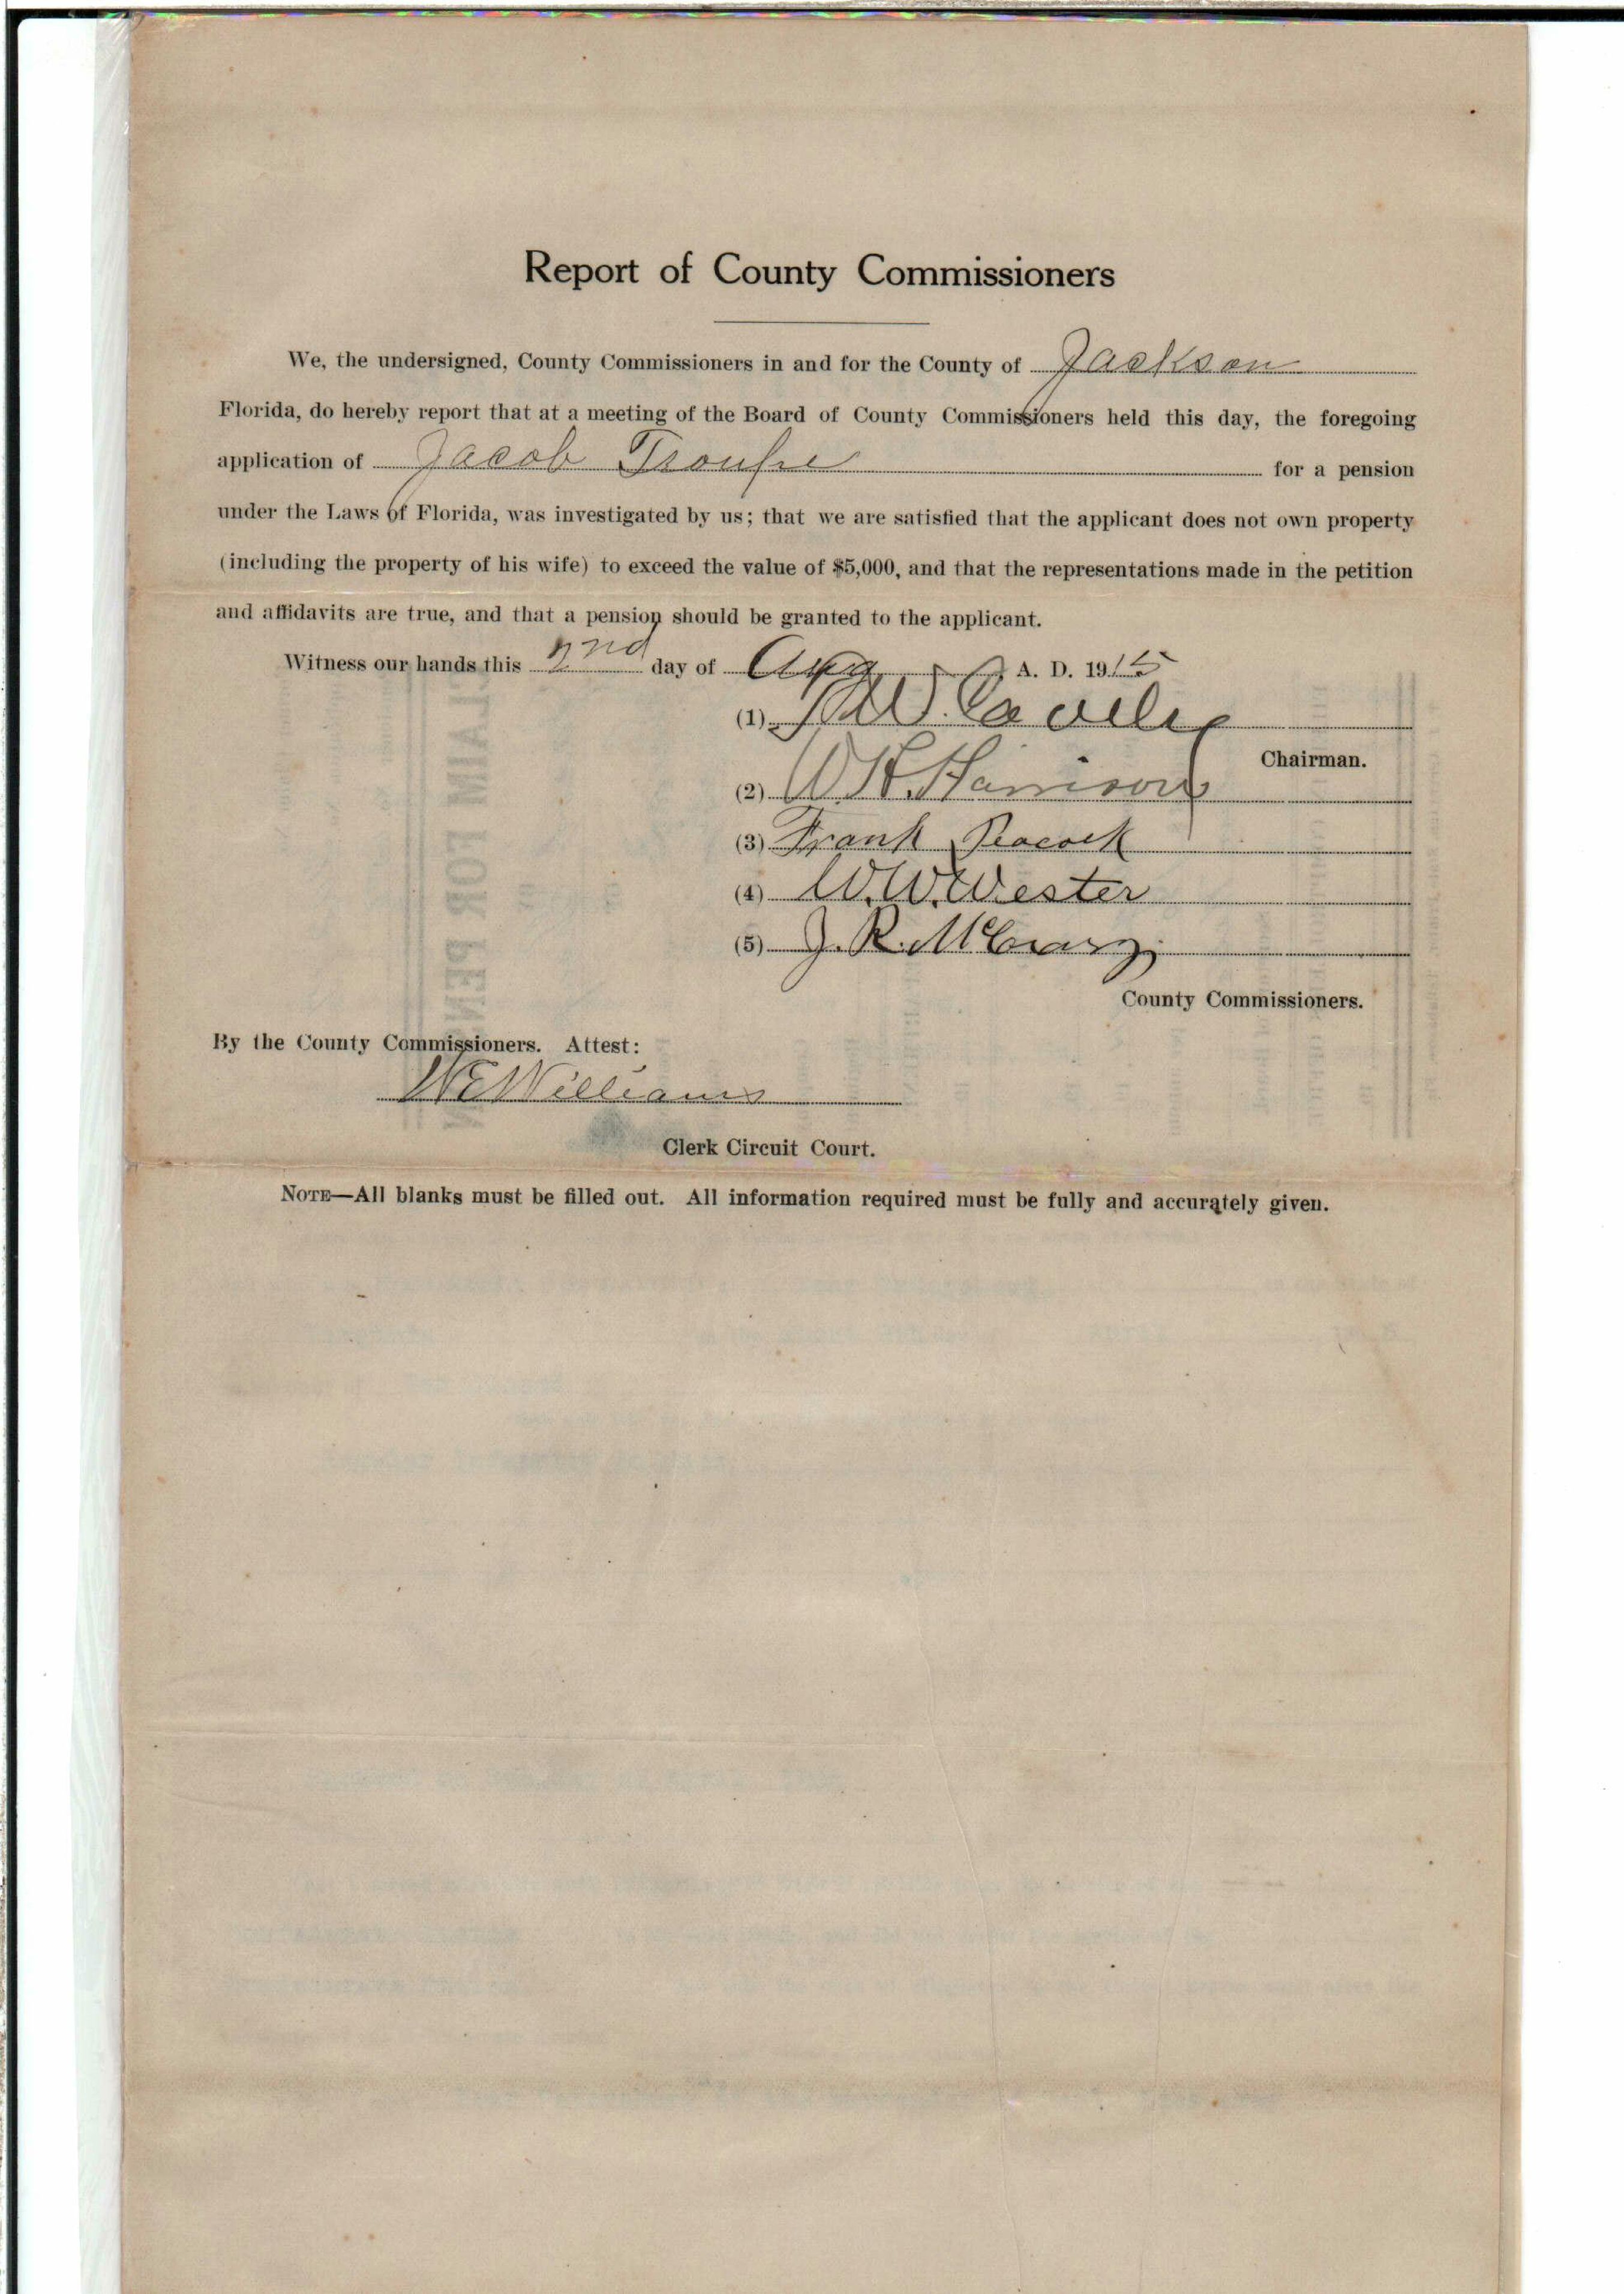 Report of County Commissioners
We, the undersigned, County Commissioners in and for the County of Jackson
Florida, do hereby report that at a meeting of the Board of County Commissioners held this day, the foregoing
application of Jacob Troupe for a pension
under the Laws of Florida, was investigated by us; that we are satisfied that the applicant does not own property
(including the property of his wife) to exceed the value of $5,000, and that the representations made in the petition
and affidavits are true, and that a pension should be granted to the applicant.
Witness our hands this 2nd day of Aug A. D. 1915
(1)
Chairman.
(2) W. H. Harrison
(3) Frank Peacock
(4) W. W. Wester
(5) J. R. McCrary
County Commissioners.
By the County Commissioners. Attest:
Williams
Clerk Circuit Court.
NOTE—All blanks must be filled out. All information required must be fully and accurately given.